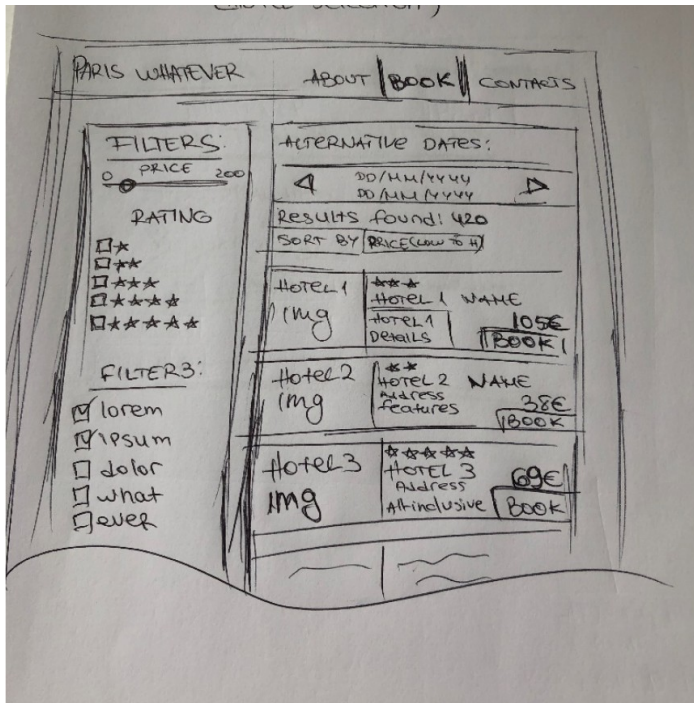 PARIS WHATEVER ABOUT BOOK CONTACTS
FILTERS:
PRICE
0 200
RATING
FILTER3:
lorem
ipsum
dolor
what
ever
ALTERNATIVE DATES:
DD/MM/YYYY
DD/MM/YYYY
Results found: 420
SORT BY PRICE (LOW TO H)
HOTEL 1
img
HOTEL 1 NAME
HOTEL 1
Details
105€
BOOK
Hotel 2
img
HOTEL 2 NAME
Address
features
38€
BOOK
Hotel 3
img
HOTEL 3
Address
All inclusive
69€
BOOK